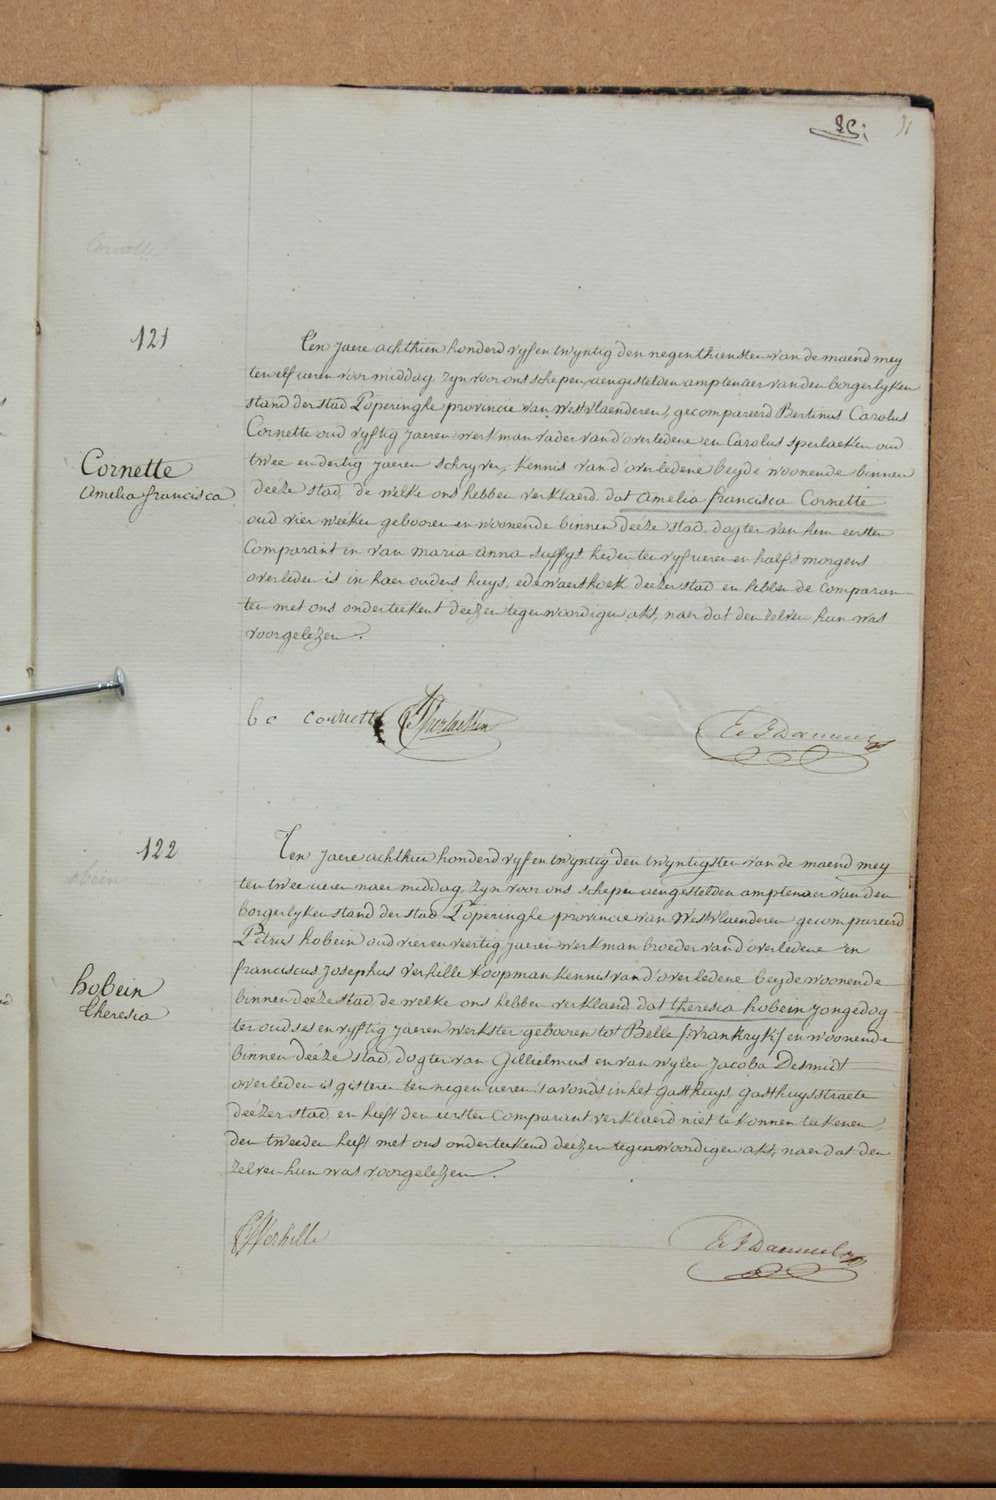 31
121
Cornette
Amelia francisca
Ten Jaere achthien honderd vyf en twyntig den negenthiensten van de maend mey
ten elf ueren voor middag zyn voor ons schepen, aengestelden amptenaer van den borgerlyken
stand der stad Poperinghe provincie van Westvlaenderen, gecompareerd Bertinus Carolus
Cornette oud vyftig Jaeren werkman vader van d'overledene en Carolus Sperlaeken oud
twee en dertig Jaeren schryver, kennis van d'overledene beyde woonende binnen
deeze stad, de welke ons hebben verklaerd dat Amelia francisca Cornette
oud vier weeken gebooren en woonende binnen deeze stad, dogter van hem eersten
Comparant en van maria anna Suffys heden ten vyf ueren en half s'morgens
overleden is in haer ouders huys, edewaerthoek deezer stad en hebben de Comparan-
ten met ons onderteekent deezen tegenwoordigen akt, naer dat den zelven hun was
voorgelezen.
b c cornette
122
hobein
theresia
Ten Jaere achthien honderd vyf en twyntig den twyntigsten van de maend mey
ten twee ueren naer middag, zyn voor ons schepen aengestelden amptenaer van den
borgerlyken stand der stad Poperinghe provincie van Westvlaenderen gecompareerd
Petrus hobein oud vier en veertig Jaeren werkman broeder van d'overledene en
franciscus Josephus verhille koopman kennis van d'overledene beyde woonende
binnen deeze stad, de welke ons hebben verklaerd dat theresia hobein Jongedog-
ter oud ses en vyftig Jaeren werkster gebooren tot Belle [:vrankryk:] en woonende
binnen deéze stad, dogter van Gillielmus en van wylen Jacoba Desmidt
overleden is gisteren ten negen ueren s'avonds in het gasthuys, gasthuysstraete
deézer stad en heeft den eersten Comparant verklaerd niet te konnen teekenen,
den tweeden heeft met ons onderteekend deezen tegenwoordigen akt, naer dat den
zelven hun was voorgelezen.
verhille